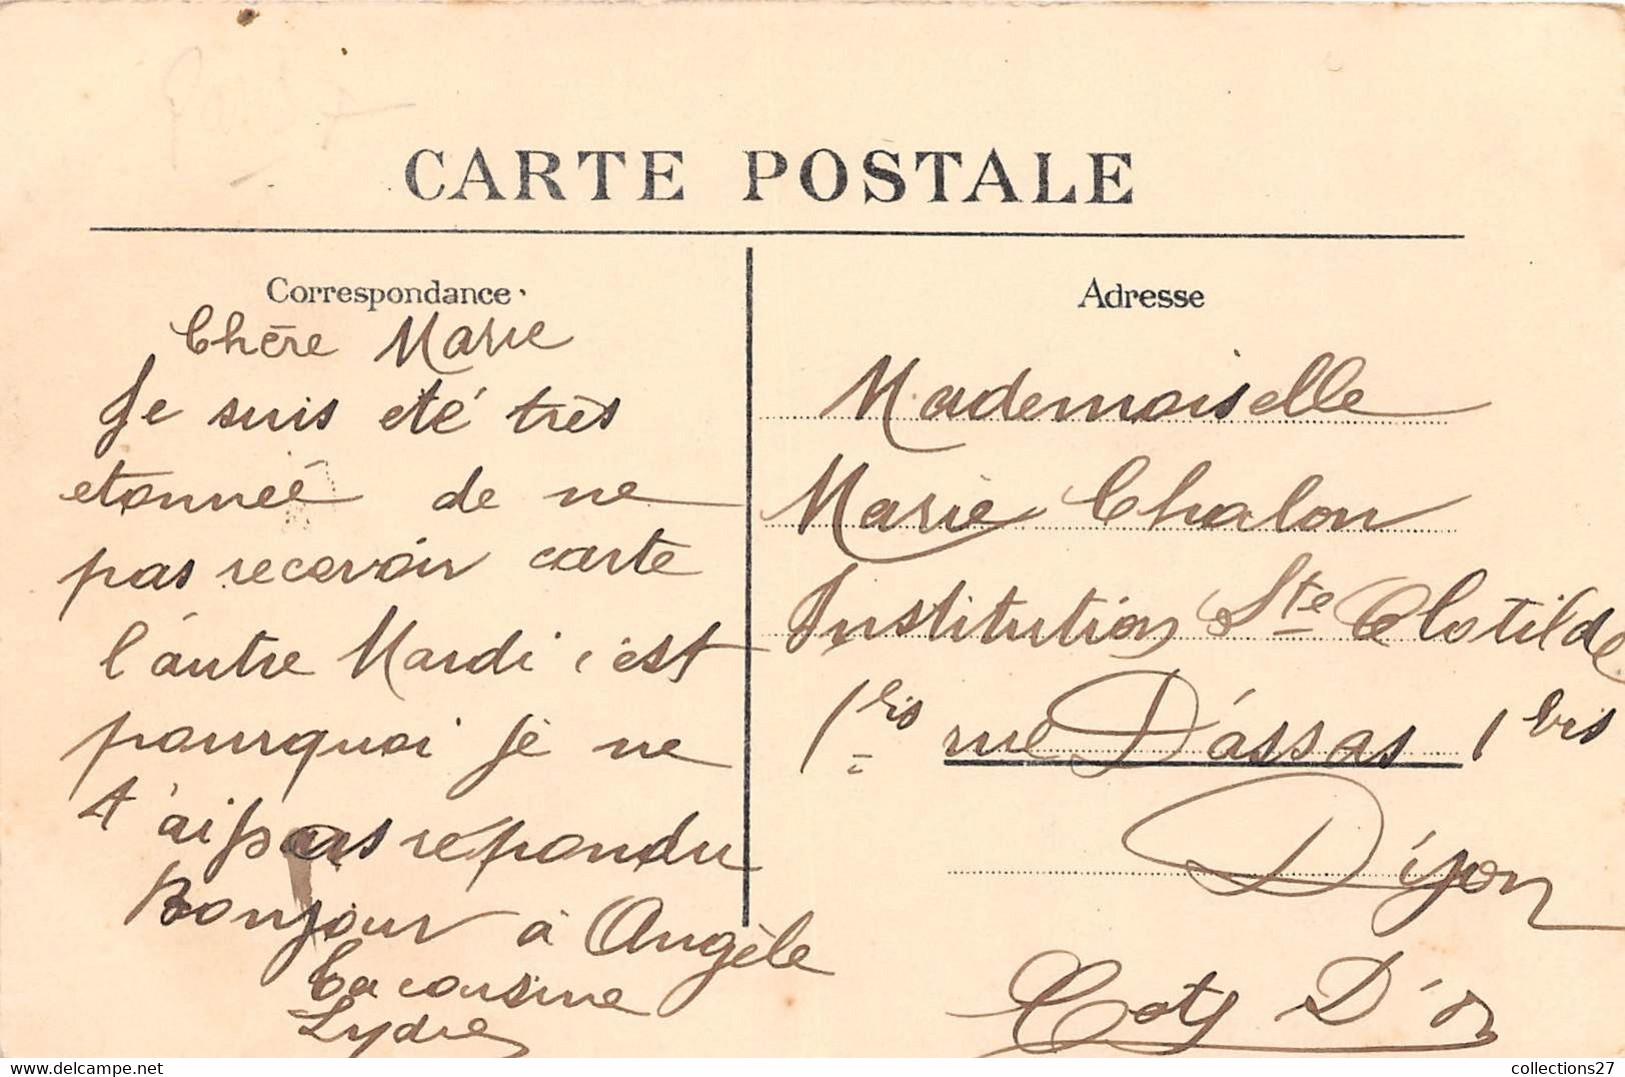 CARTE POSTALE
Correspondance
Chère Marie
Je suis eté très
etonneé de ne
pas recevoir carte
l'autre Mardi c'est
pourquoi je ne
t'ai pas repondu
Bonjour à Angèle
Ta cousine
Lydie
Adresse
Mademoiselle
Marie Chalon
Institution Ste Clotilde
1 bis rue D'assas 1 bis
Dijon
Cote D'or
collections27